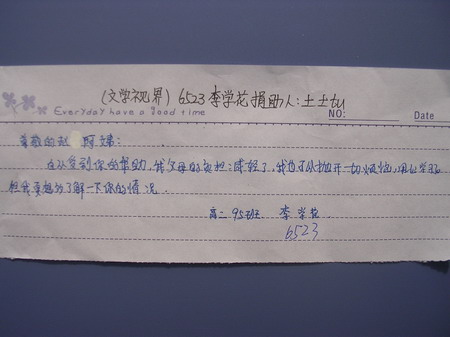 (文学视界) 6523 李学花 捐助人: 土土tu
Everyday have a good time
NO:
Date
尊敬的赵 阿姨:
自从受到你的帮助,我父母的负担减轻了,我也可以抛开一切烦恼,用心学习
但我真想多了解一下你的情况.
高二 95班 李学花
6523